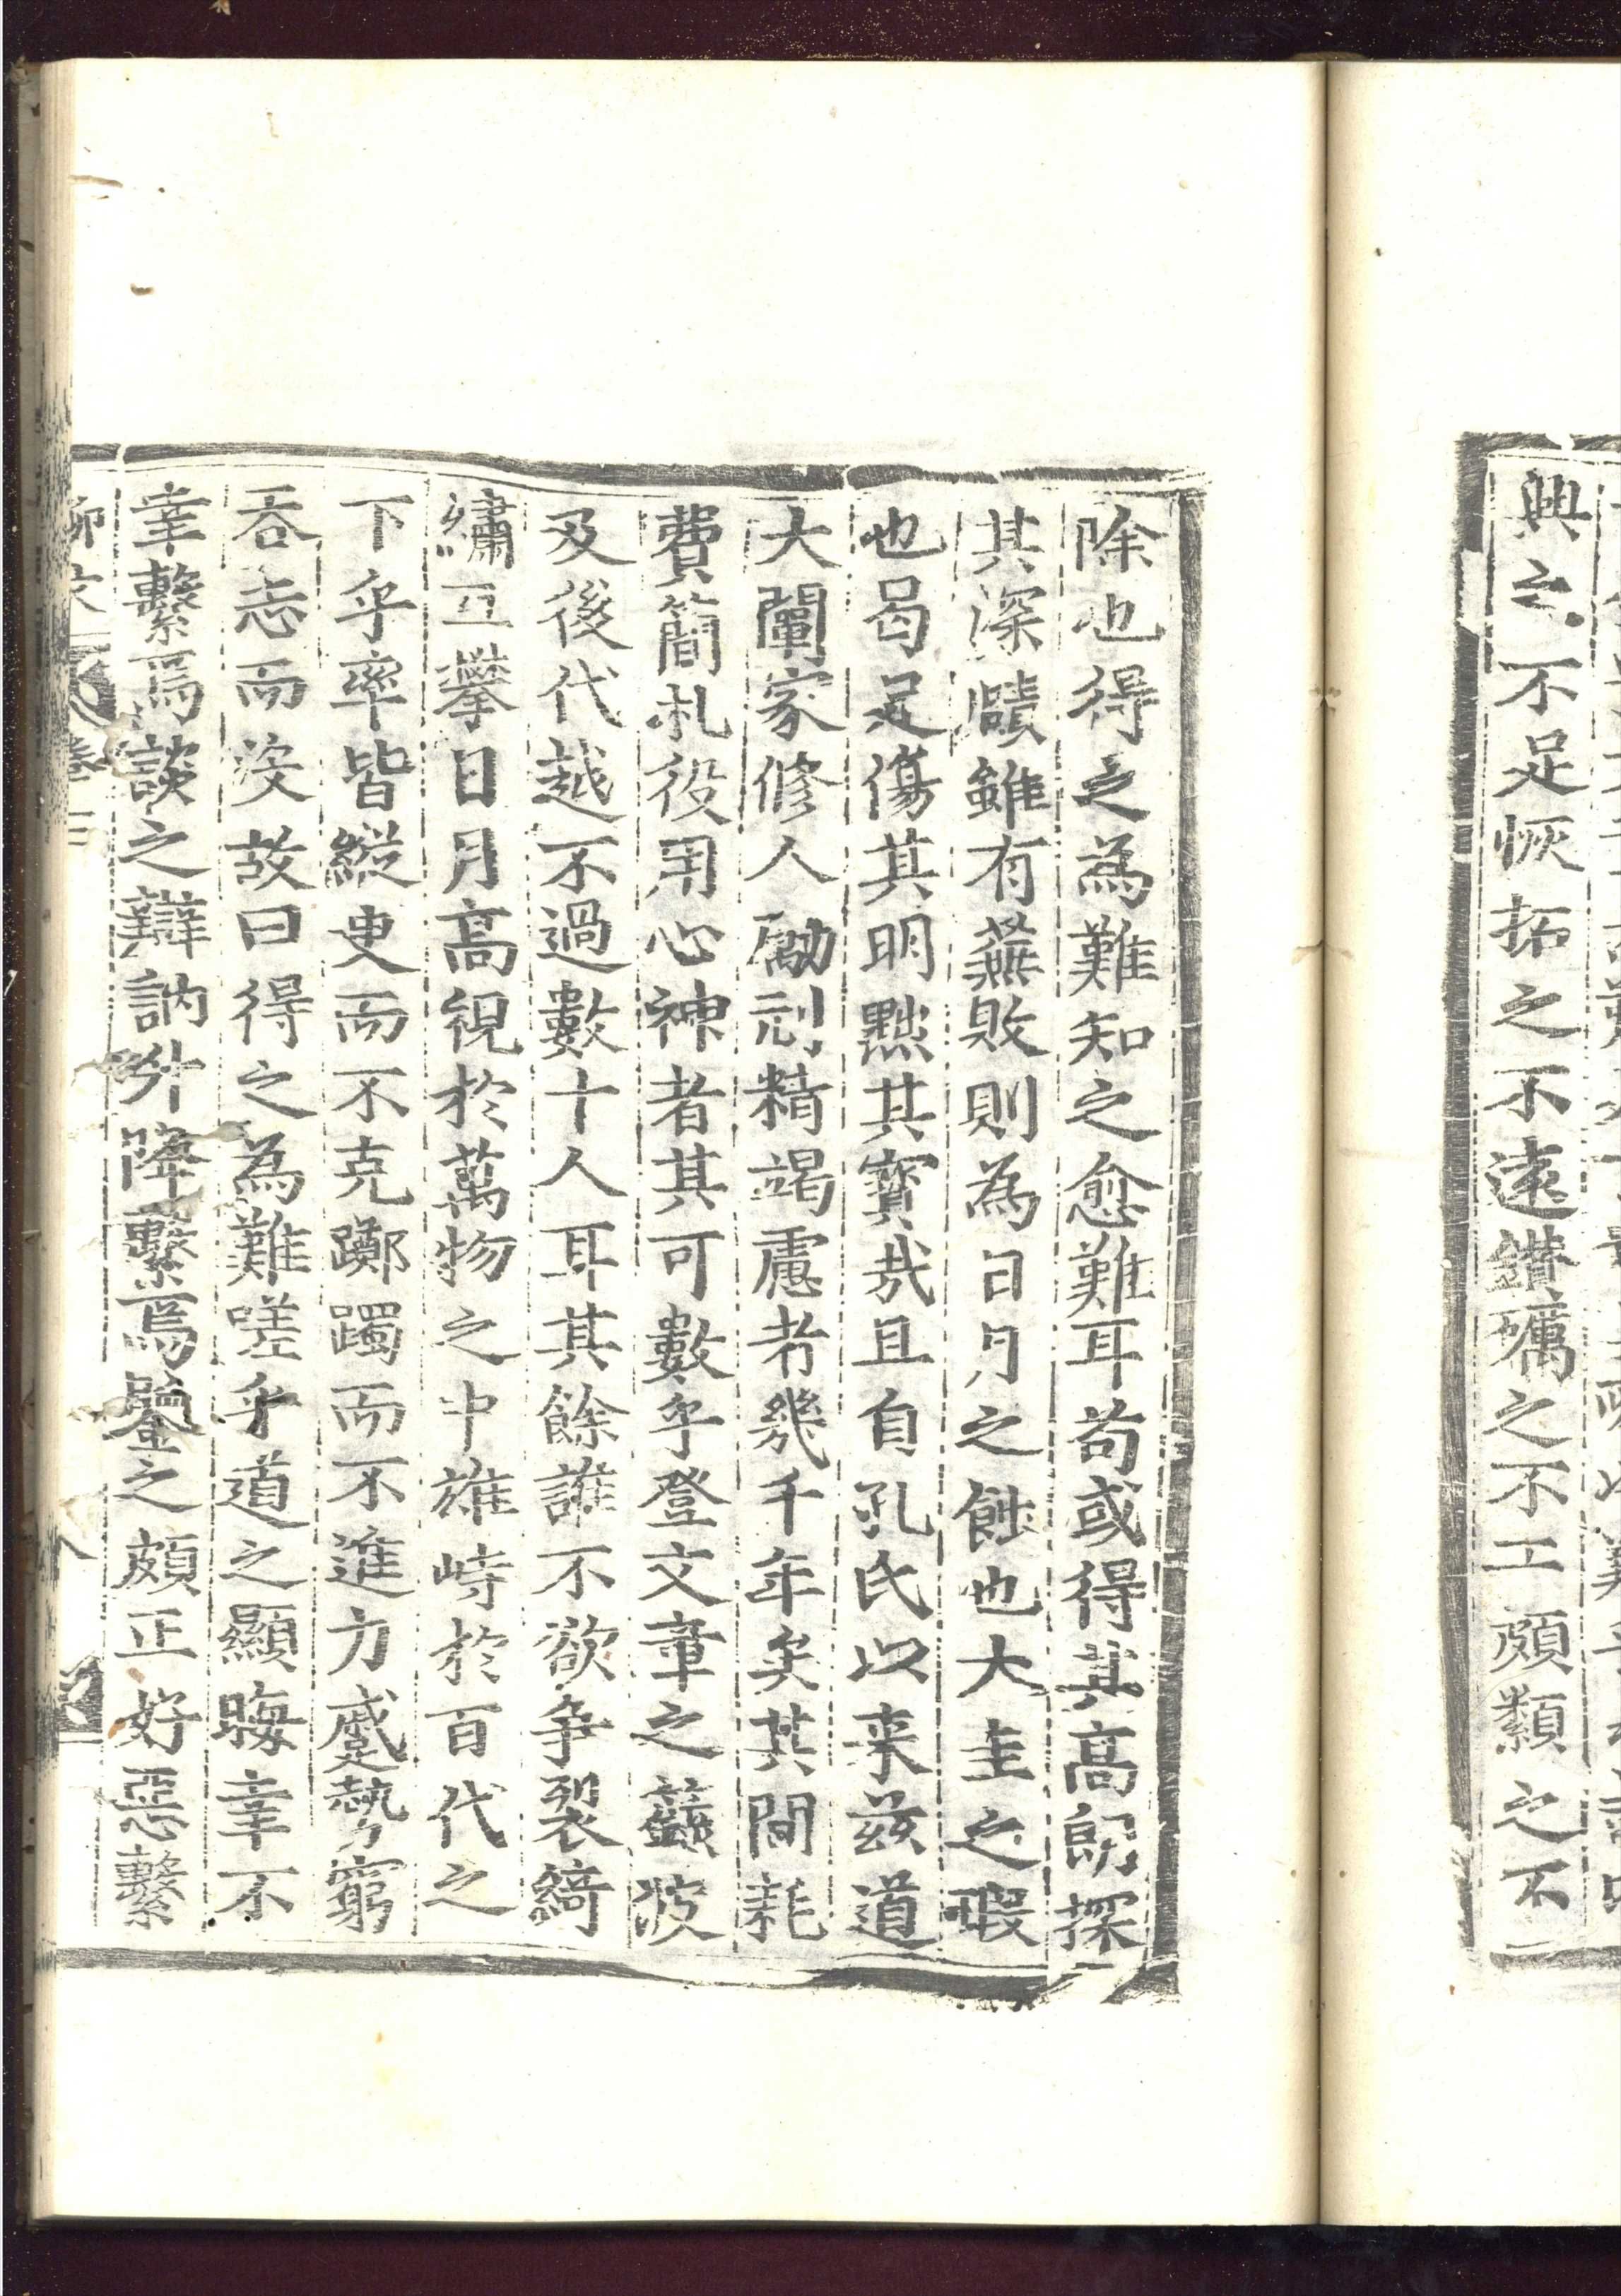 興之不足恢拓之不遠鑚礪之不工頗纇之不
除也得之為難知之愈難耳苟或得其高朗探
其深賾雖有蕪敗則為日月之蝕也大圭之瑕
也曷足傷其明黜其寳㦲且自孔氏以来兹道
大闡家修人勵刓精竭慮者幾千年矣其間耗
費簡札役用心神者其可數乎登文章之籙波
及後代越不過數十人耳其餘誰不欲争裂綺
繡互攀日月高視於萬物之中雄峙於百代之
下乎率皆縱臾而不克躑躅而不進力蹙勢窮
吞志而沒故曰得之為難嗟乎道之顯晦幸不
幸繫焉談之辯訥升降繫焉鑒之頗正好惡繫